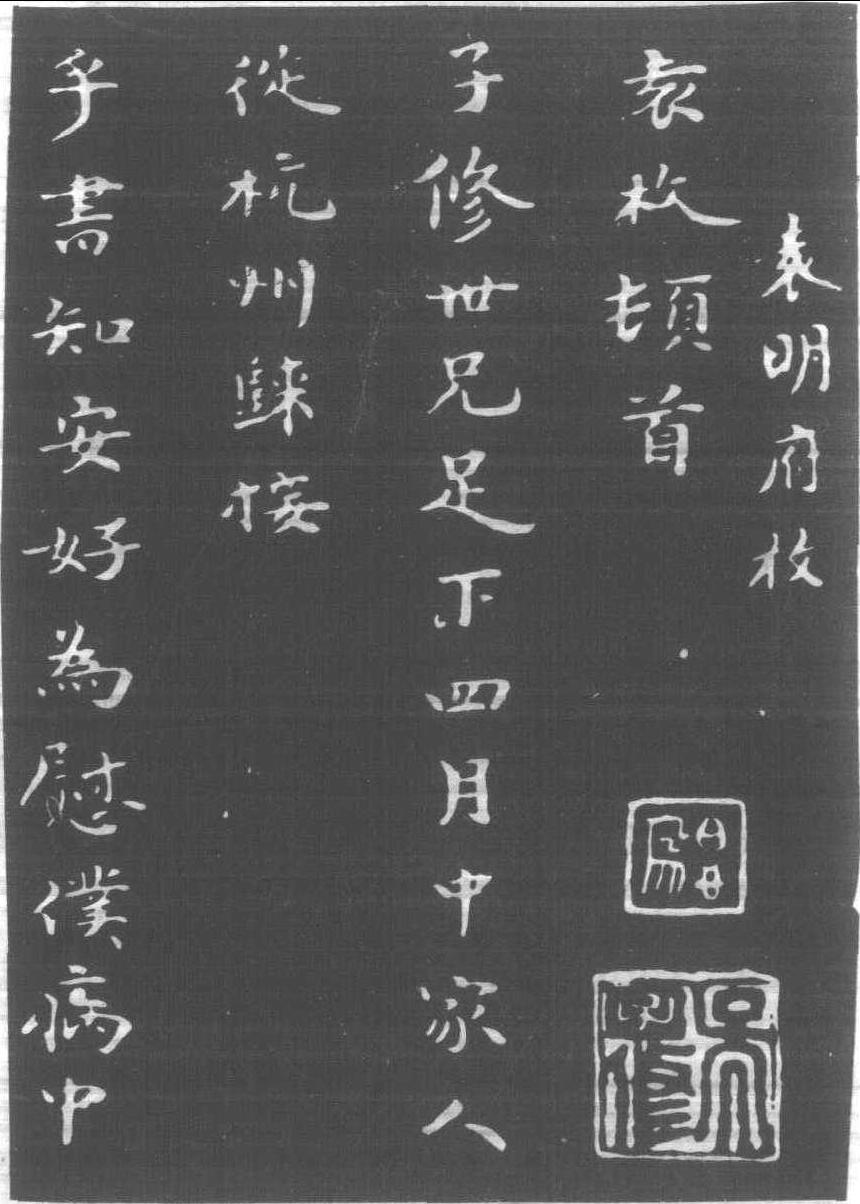 袁明府枚
袁枚頓首
子修世兄足下四月中家人
從杭州歸接
手書知安好為慰僕病中